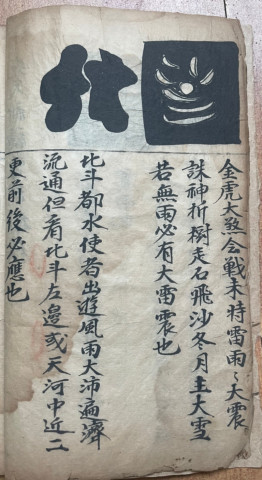 金虎大煞会戦未時雷雨〻大震
誅神折樹走石飛沙冬月主大雪
若無雨必有大雷震也
北斗都水使者出遊風雨大沛遍濟
流通但看北斗左邊或天河中近二
更前後必應也